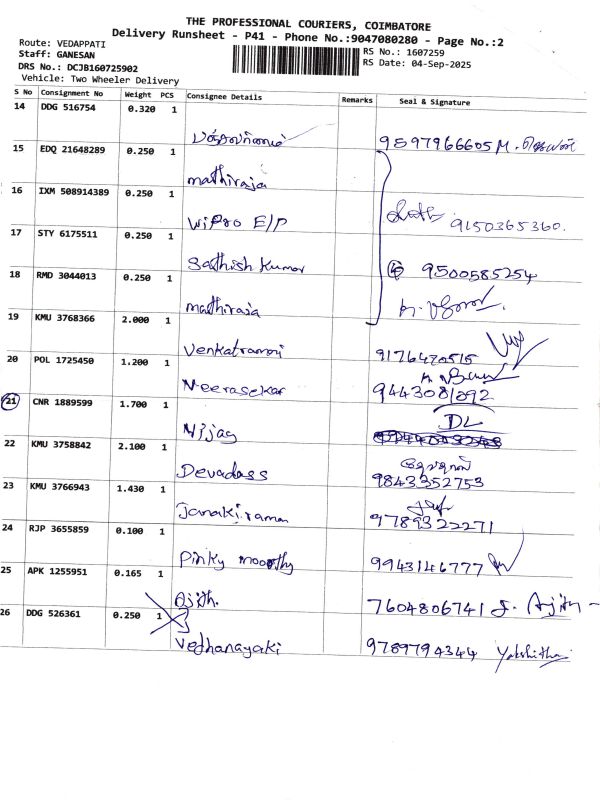 THE PROFESSIONAL COURIERS, COIMBATORE
Delivery Runsheet - P41 - Phone No.:9047080280 - Page No.:2
Route: VEDAPPATI
Staff: GANESAN
RS No.: 1607259
DRS No.: DCJB160725902
RS Date: 04-Sep-2025
Vehicle: Two Wheeler Delivery
S No Consignment No Weight PCS Consignee Details Remarks Seal & Signature
14 DDG 516754 0.320 1
9597966605 M.
15 EDQ 21648289 0.250 1
mathiraja
16 IXM 508914389 0.250 1
Wipro E/P 9150365360.
17 STY 6175511 0.250 1
Sathish Kumar 9500585254
18 RMD 3044013 0.250 1
mathiraja
19 KMU 3768366 2.000 1
Venkatramani 9176420515
20 POL 1725450 1.200 1
Neerasekar 9443081092
21 CNR 1889599 1.700 1
DL
Nijag
22 KMU 3758842 2.100 1
Devadass 9843352753
23 KMU 3766943 1.430 1
Janakiraman 9789322271
24 RJP 3655859 0.100 1
Pinky moorthy 9943146777
25 APK 1255951 0.165 1
Ajith. 7604806741 S. Ajith
26 DDG 526361 0.250 1
Vedhanayaki 9789794344 Yakshitha